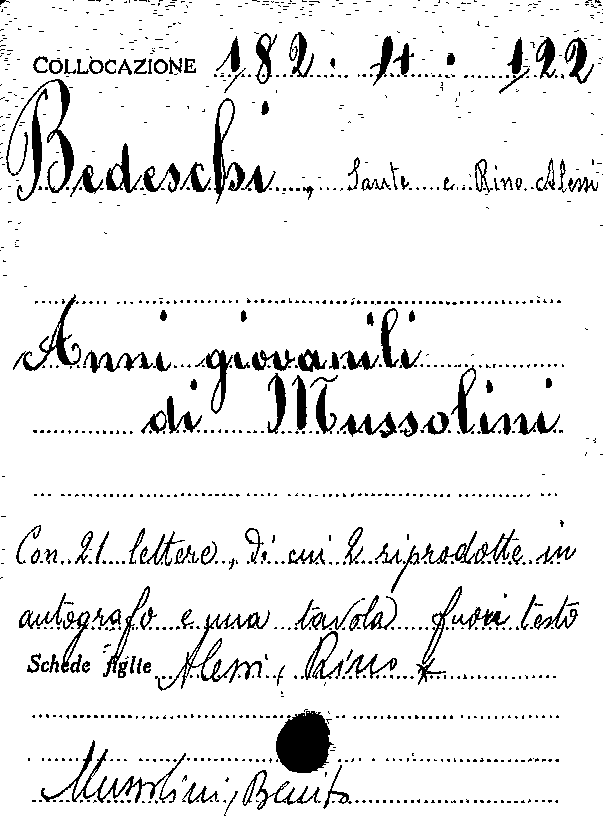 COLLOCAZIONE 182. 11. 122
Bedeschi, Sante e Rino Alessi
Anni giovanili
di Mussolini
Con 21 lettere, di cui 2 riprodotte in
autografo e una tavola fuori testo
Schede figlie Alessi, Rino *
Mussolini, Benito